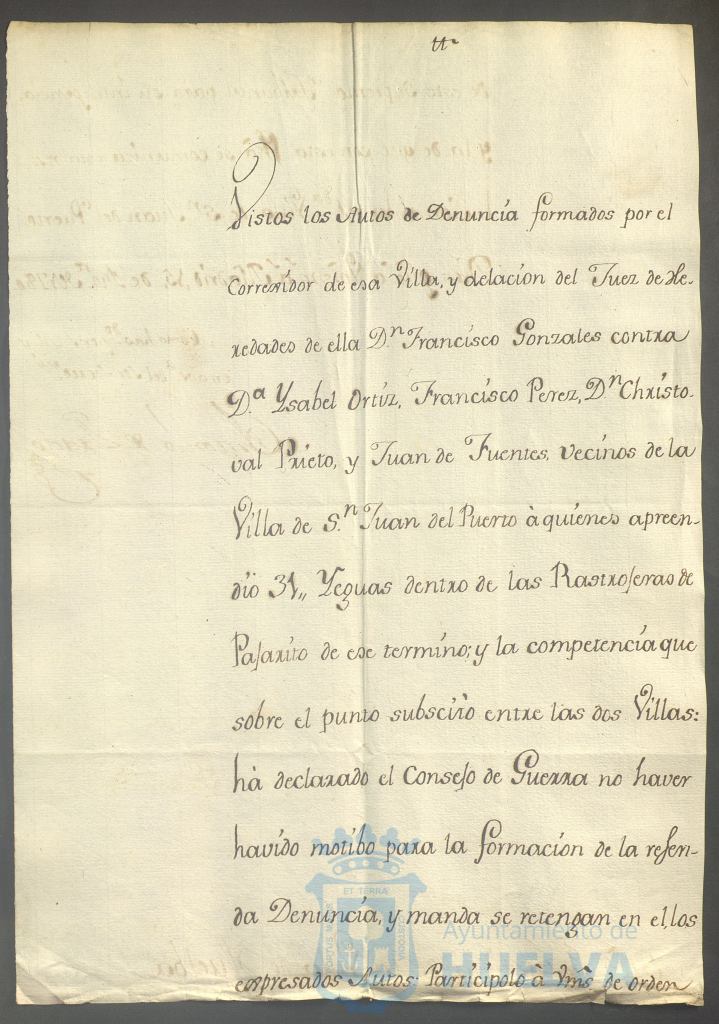 Vistos los Autos de Denuncia formados por el
Correxidor de esa Villa, y delacion del Juez de He-
redades de ella D.n Francisco Gonzales contra
D.a Ysabel Ortiz, Francisco Perez, D.n Christo-
val Prieto, y Juan de Fuentes, vecinos de la
Villa de S.n Juan del Puerto à quienes apreen-
dio 31,, Yeguas dentro de las Rastrojeras de
Pajarito de ese termino; y la competencia que
sobre el punto subscitò entre las dos Villas:
hà declarado el Consejo de Guerra no haver
havido motibo para la formacion de la referi-
da Denuncia, y manda se retengan en el, los
expresados Autos: Participolo à Vms. de orden
Ayuntamiento de
HUELVA
ET TERRA